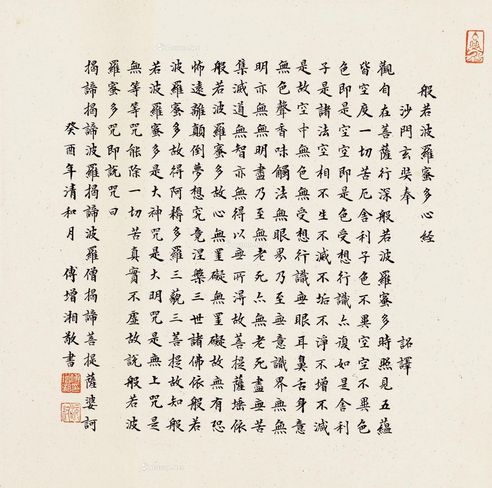 般若波羅蜜多心經
沙門玄奘奉 詔譯
觀自在菩薩行深般若波羅蜜多時照見五蘊
皆空度一切苦厄舍利子色不異空空不異色
色即是空空即是色受想行識亦復如是舍利
子是諸法空相不生不滅不垢不淨不增不減
是故空中無色無受想行識無眼耳鼻舌身意
無色聲香味觸法無眼界乃至無意識界無無
明亦無無明盡乃至無老死亦無老死盡無苦
集滅道無智亦無得以無所得故菩提薩埵依
般若波羅蜜多故心無罣礙無罣礙故無有恐
怖遠離顛倒夢想究竟涅槃三世諸佛依般若
波羅蜜多故得阿耨多羅三藐三菩提故知般
若波羅蜜多是大神咒是大明咒是無上咒是
無等等咒能除一切苦真實不虛故說般若波
羅蜜多咒即說咒曰
揭諦揭諦波羅揭諦波羅僧揭諦菩提薩婆訶
癸酉年清和月 傅增湘敬書